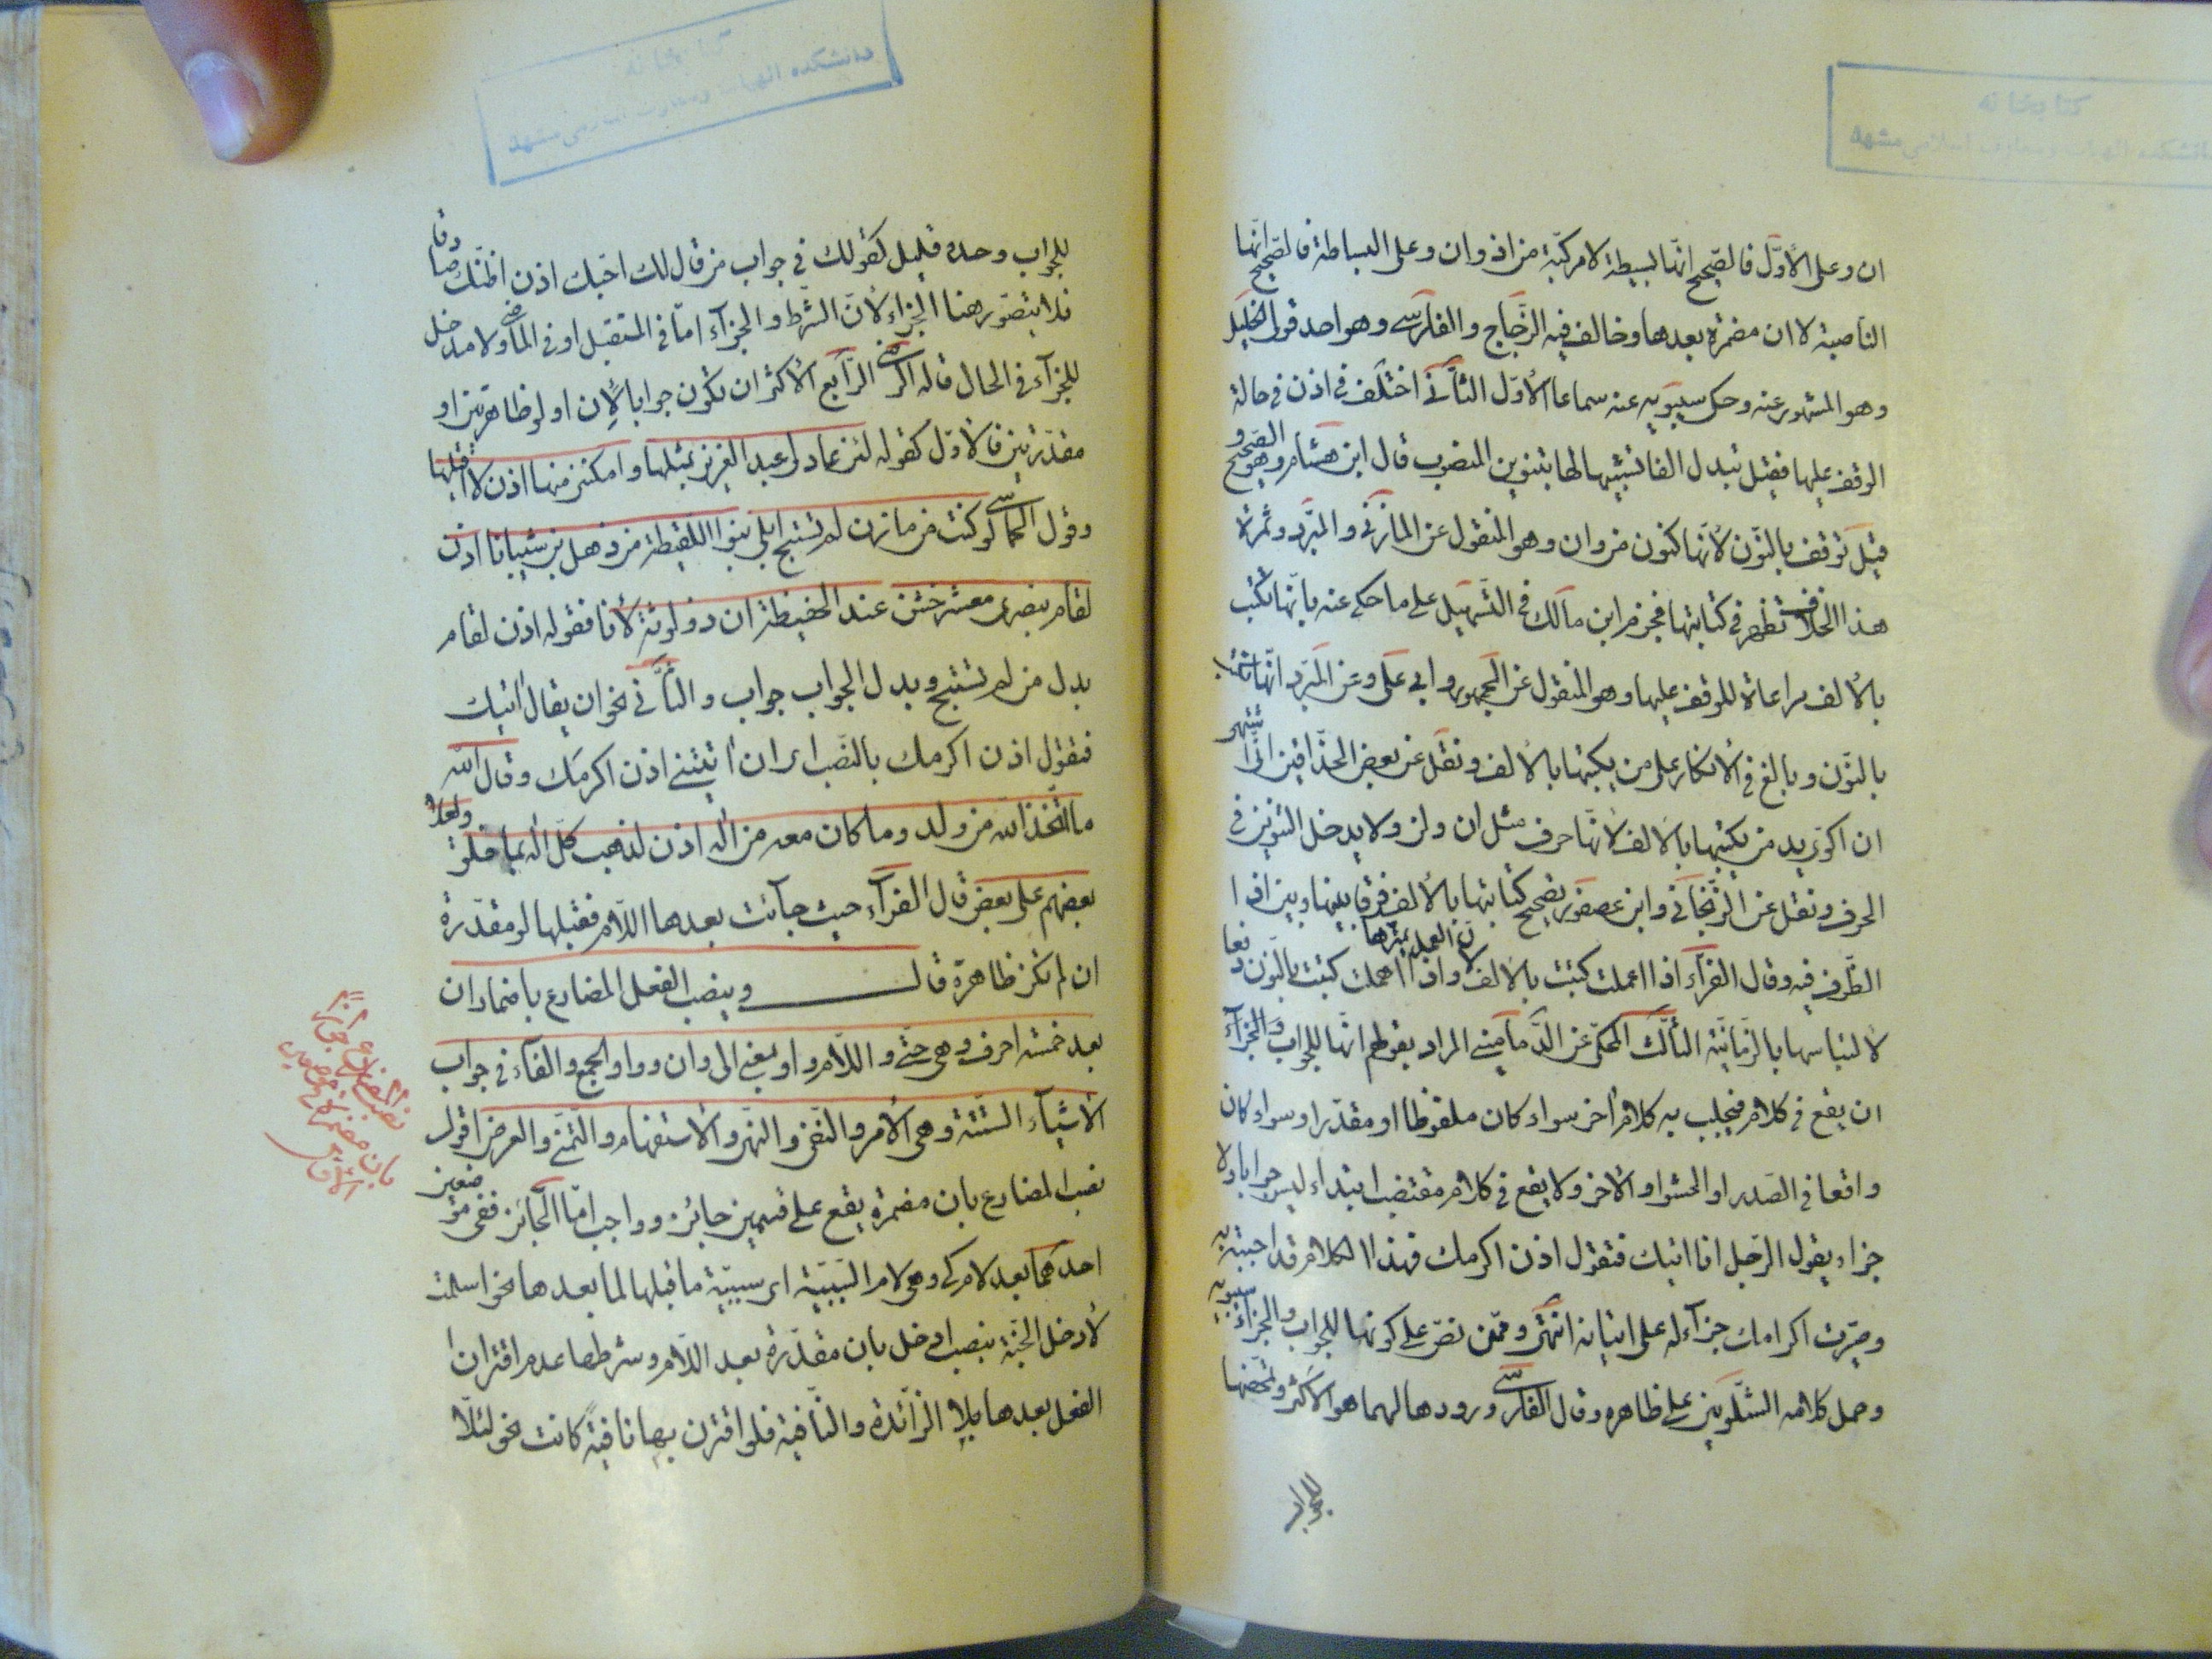 كتابخانه
دانشكده الهيات ومعارف اسلامي مشهد
ان وعلى الأوّل فالصّحيح انّها بسيطة لا مركبّة من اذ وان وعلى البساطة فالصّحيح انّها
النّاصبة لا ان مضمرة بعدها وخالف فيه الزّجّاج والفارسى وهو احد قولى الخليل
وهو المشهور عنه وحكى سيبويه عنه سماعا الأوّل الثّانى اختلف فى اذن فى حالة
الوقف عليها فقيل تبدل الفا تشبيها لها بتنوين المنصوب قال ابن هشام وهو الصّحيح و
قيل توقف بالنّون لأنّها كنون من وان وهو المنقول عن المازنى والمبّرد وثمرة
هذا الخلاف تظهر فى كتابتها فجزم ابن مالك فى التّسهيل على ما حكى عنه بانّها تكتب
بالألف مراعاة للوقف عليها وهو المنقول عن الجمهور وابى على وعن المبّرد انّها تكتب
بالنّون وبالغ فى الأنكار على من يكتبها بالألف ونقل عن بعض الحذّاقين انّى اشتهى
ان اكوى يد من يكتبها بالألف لأنّها حرف مثل ان ولن ولا يدخل التنوين فى
الحرف ونقل عن الزّنجانى وابن عصفور تصحيح كتابتها بالألف فرقا بينها وبين اذا
الظّرف فيه وقال الفرّآء اذا اعملت كتبت بالألف لأن العمل يميّزها واذا اهملت كتبت بالنّون دفعا
لألتباسها بالزّمانيّة الثّالث المحكى عن الدّمامينى المراد بقولهم انّها للجواب والجزآء
ان يقع فى كلام فيجلب به كلام أخر سواء كان ملفوظا او مقدّرا وسواء كان
واقعا فى الصّدر او الحشو او الأخر ولا يقع فى كلام مقتضب ابتداء ليس جوابا ولا
جزاء يقول الرّجل انا اتيك فتقول اذن اكرمك فهذا الكلام قد اجبته به
وصيّرت اكرامك جزآء له على اتيانه انتهى وممّن نصّ على كونها للجواب والجزاء سيبويه
وحمل كلامه الشّلوبين على ظاهره وقال الفارسى ورودها لهما هو الأكثر وتمحّضها
للجواب
كتابخانه
دانشكده الهيات ومعارف اسلامى مشهد
للجواب وحده قليل كقولك فى جواب من قال لك احبّك اذن اظنّك صادقا
فلا يتصوّر هنا الجزاء لأنّ الشّرط والجزآء امّا فى المستقبل او فى الماضى ولا مدخل
للجزآء فى الحال قاله الرضى الرّابع الأكثر ان تكون جوابا لإن او لو ظاهرتين او
مقدّرتين فالأوّل كقوله لئن عاد لى عبد العزيز بمثلها وامكننى منها اذن لا اقيلها
وقول الحماسى لو كنت من مازن لم تستبح ابلى بنوا اللّقيطة من ذهل بن شيبانا اذن
لقام بنصرى معشر خشن عند الحفيظة ان ذو لوثة لأنا فقوله اذن لقام
بدل من لم تستبح وبدل الجواب جواب والثّانى نحو ان يقال أتيك
فتقول اذن اكرمك بالنّصب اى ان أتيتنى اذن اكرمك وقال الله
ما اتّخذ الله من ولد وما كان معه من اله اذن لذهب كلّ اله بما خلق ولعلا
بعضهم على بعض قال الفرّآء حيث جآئت بعدها اللّام فقبلها لو مقدّرة
ان لم تكن ظاهرة قال وينصب الفعل المضارع باضمار ان
بعد خمسة احرف وهى حتّى واللّام واو بمعنى الى وان وواو الجمع والفآء فى جواب
الأشيآء السّتّة وهى الأمر والنّفى والنّهى والأستفهام والتّمنّى والعرض اقول
نصب المضارع بان مضمرة يقع على قسمين جائز وواجب امّا الجّائز ففى موضعين
احدهما بعد لام كى وهى لام السّببيّة اى سببيّة ما قبلها لما بعدها نحو اسلمت
لأدخل الجنّة بنصب ادخل بان مقدّرة بعد اللّام وشرطها عدم اقتران
الفعل بعدها بلا الزّائدة والنّافية فلو اقترن بها نافية كانت نحو لئلّا
نصب المضارع
بان مضمرة